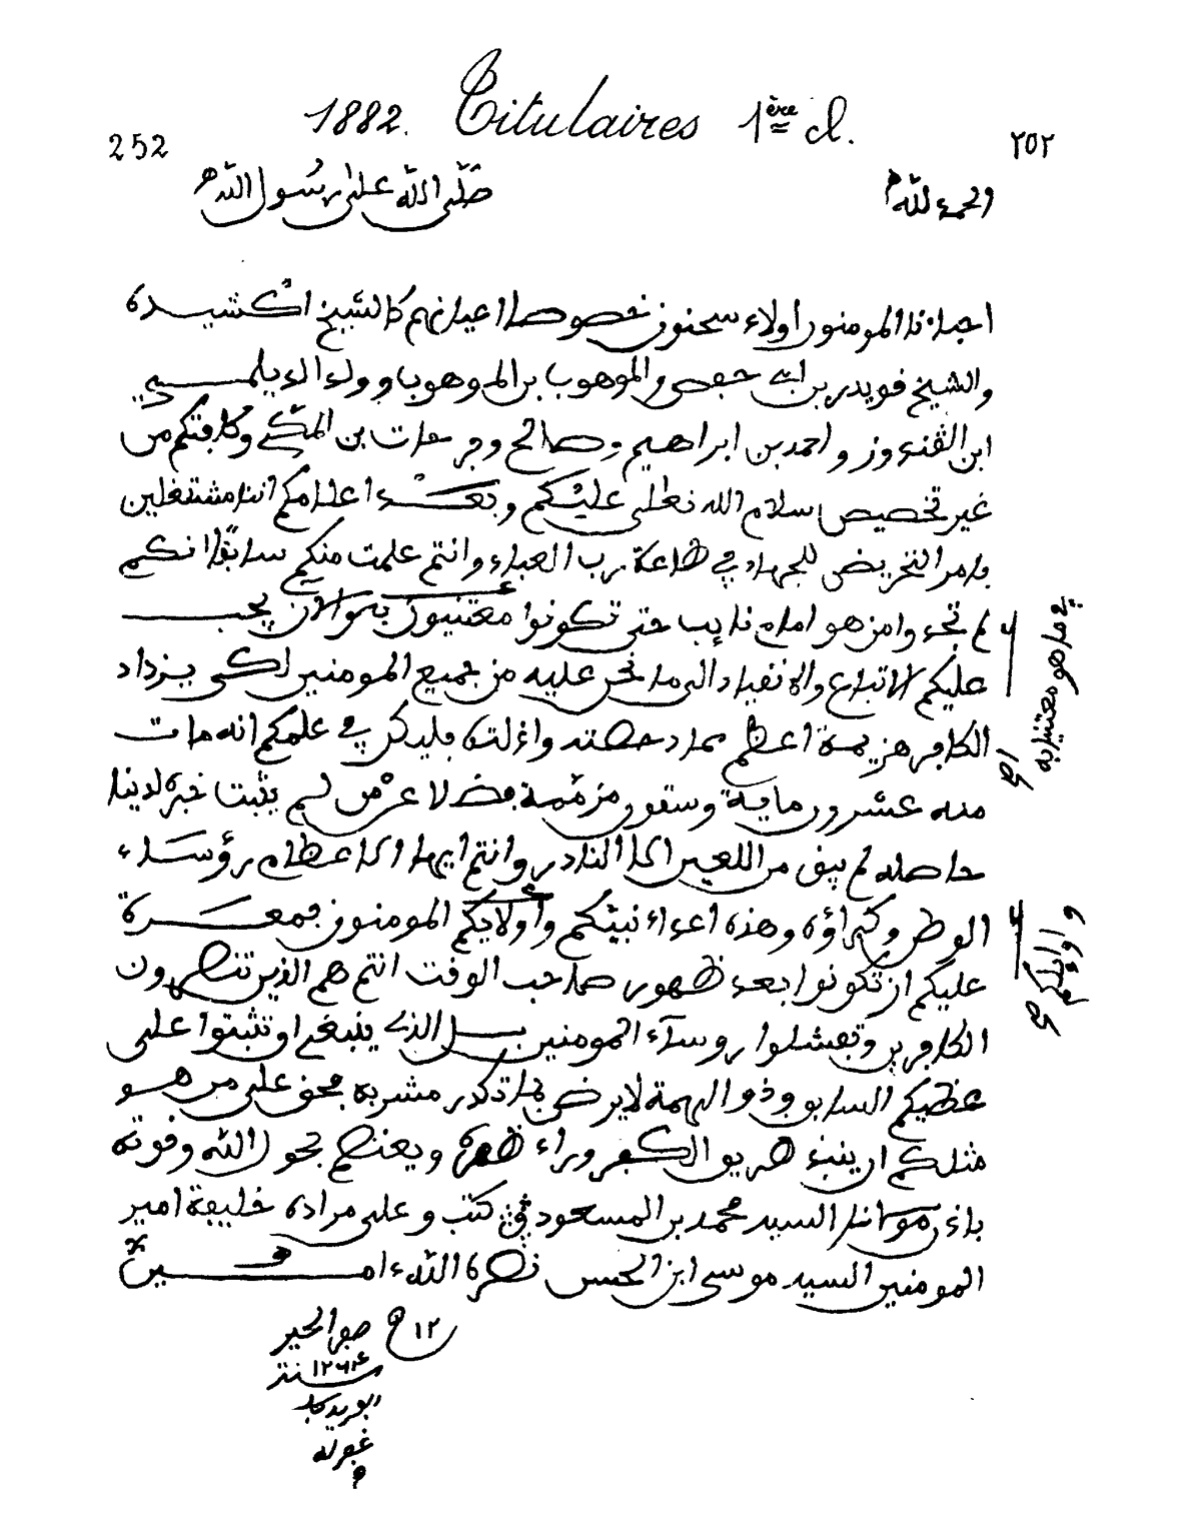 1882. Titulaires 1ère cl.
252
٢٥٢
الحمد لله
صلى الله على رسول الله
احبابنا المومنون اولاد سحنون خصوصا اعيانهم كالشيخ اكشيده
والشيخ فويدر بن ابي حفص والموهوب بن الموهوب وولد الديلمي
ابن الڨندوز واحمد بن ابراهيم وصالح وفرحات بن المكي وكافتكم من
غير تخصيص سلام الله تعلى عليكم وبعد اعلامكم اننا مشتغلين
بامر التحريض للجهاد في طاعة رب العباد وانتم علمت منكم سابقا انكم
لم تجدوا من هو امام نايب حتى تكونوا معتنيون به والان يجب
عليكم الاتباع والانقياد الى ما نحن عليه من جميع المومنين لكي يزداد
الكافر هزيمة اعظم مما دحضته واذلته فليكن في علمكم انه مات
منه عشرون ماية وستون من فضلا عن من لم يثبت خبره لدينا
حاصله لم يبق من اللعين الا النادر وانتم ايها الاعظام رؤساء
الوطن وكبراؤه وهذه اعداء نبيكم وأولايكم المومنون فمعرة
عليكم ان تكونوا بعد ظهور صاحب الوقت انتم هم الذين تنصرون
الكافرين وتفشلوا روساء المومنين بل الذي ينبغي ان تثبتوا على
عظيكم السابق وذو الهمة لا يرضى بما تكدر مشربه فحق على من هو
مثلكم ان ينبذ طريق الكفر وراء ظهره ويعتصم بحول الله وقوته
باذن مولانا السيد محمد بن المسعود كتب وعلى مراده خليفة امير
المومنين السيد موسى ابن الحسن نصره الله ءامين
١٢ صفر الخير
سنة ١٢٦٤
غفر له
في ما هو معتنيا به
اصح
واوايلكم
صح